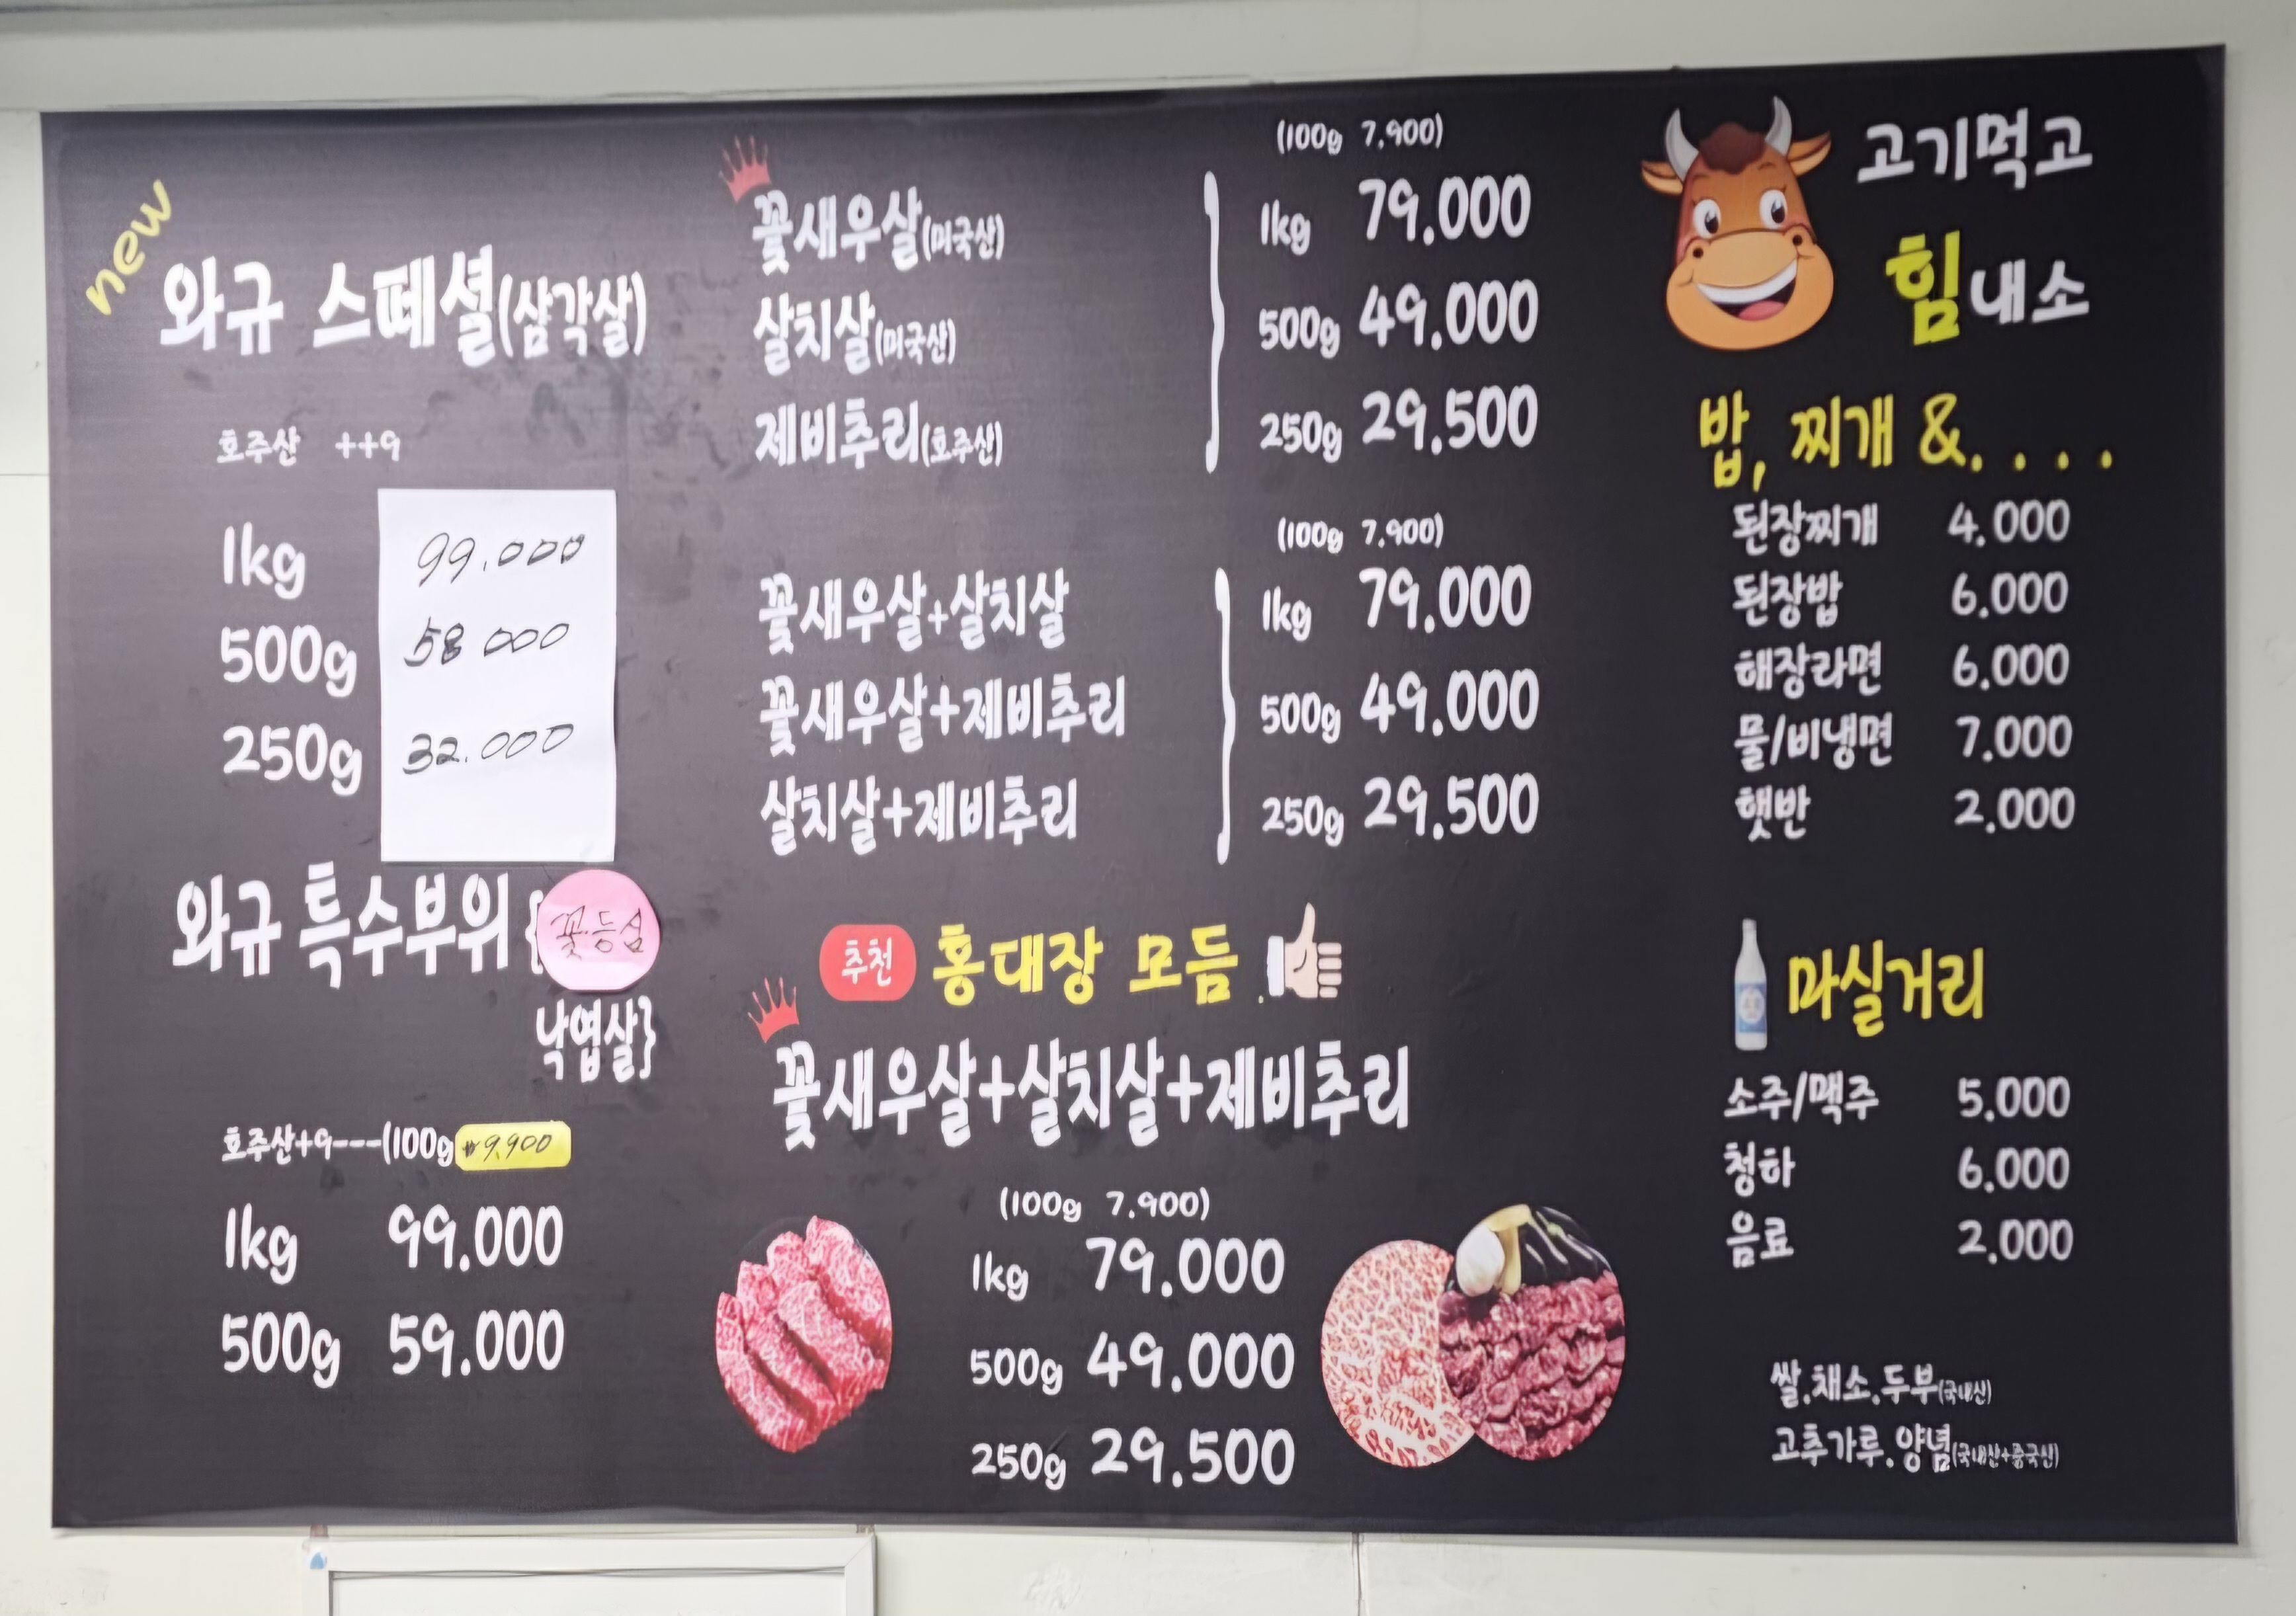 new
와규 스페셜(삼각살)
호주산 ++9
1kg 99.000
500g 58 000
250g 32.000
와규 특수부위{꽃등심
낙엽살}
호주산+9---(100g ₩9.900
1kg 99.000
500g 59.000
(100g 7.900)
꽃새우살(미국산) 1kg 79.000
살치살(미국산) 500g 49.000
제비추리(호주산) 250g 29.500
(100g 7.900)
꽃새우살+살치살 1kg 79.000
꽃새우살+제비추리 500g 49.000
살치살+제비추리 250g 29.500
추천 홍대장 모듬
꽃새우살+살치살+제비추리
(100g 7.900)
1kg 79.000
500g 49.000
250g 29.500
고기먹고
힘내소
밥, 찌개 &. . . .
된장찌개 4.000
된장밥 6.000
해장라면 6.000
물/비냉면 7.000
햇반 2.000
마실거리
소주/맥주 5.000
청하 6.000
음료 2.000
쌀.채소.두부(국내산)
고추가루.양념(국내산+중국산)